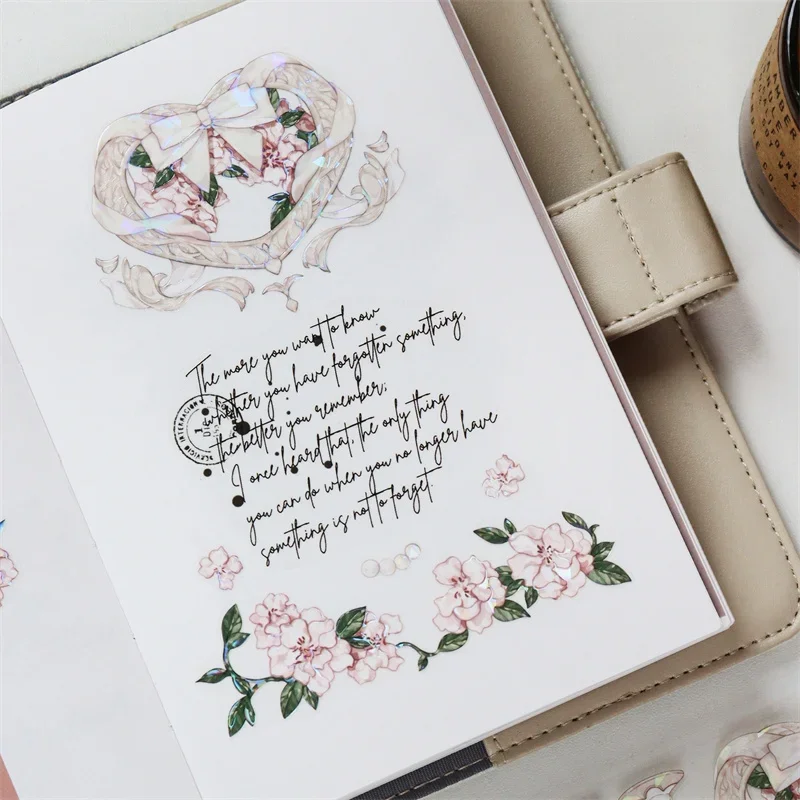 The more you want to know
whether you have forgotten something,
the better you remember;
I once heard that, the only thing
you can do when you no longer have
something is not to forget.
INTERNACION
SERVICIO
AMBER